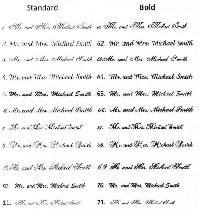 Standard Bold
1. Mr. and Mrs. Michael Smith 61. Mr. and Mrs. Michael Smith
2. Mr. and Mrs. Michael Smith 62. Mr. and Mrs. Michael Smith
3. Mr. and Mrs. Michael Smith 63. Mr. and Mrs. Michael Smith
4. Mr. and Mrs. Michael Smith 64. Mr. and Mrs. Michael Smith
5. Mr. and Mrs. Michael Smith 65. Mr. and Mrs. Michael Smith
6. Mr. and Mrs. Michael Smith 66. Mr. and Mrs. Michael Smith
7. Mr. and Mrs. Michael Smith 67. Mr. and Mrs. Michael Smith
8. Mr. and Mrs. Michael Smith 68. Mr. and Mrs. Michael Smith
9. Mr. and Mrs. Michael Smith 69. Mr. and Mrs. Michael Smith
10. Mr. and Mrs. Michael Smith 70. Mr. and Mrs. Michael Smith
11. Mr. and Mrs. Michael Smith 71. Mr. and Mrs. Michael Smith